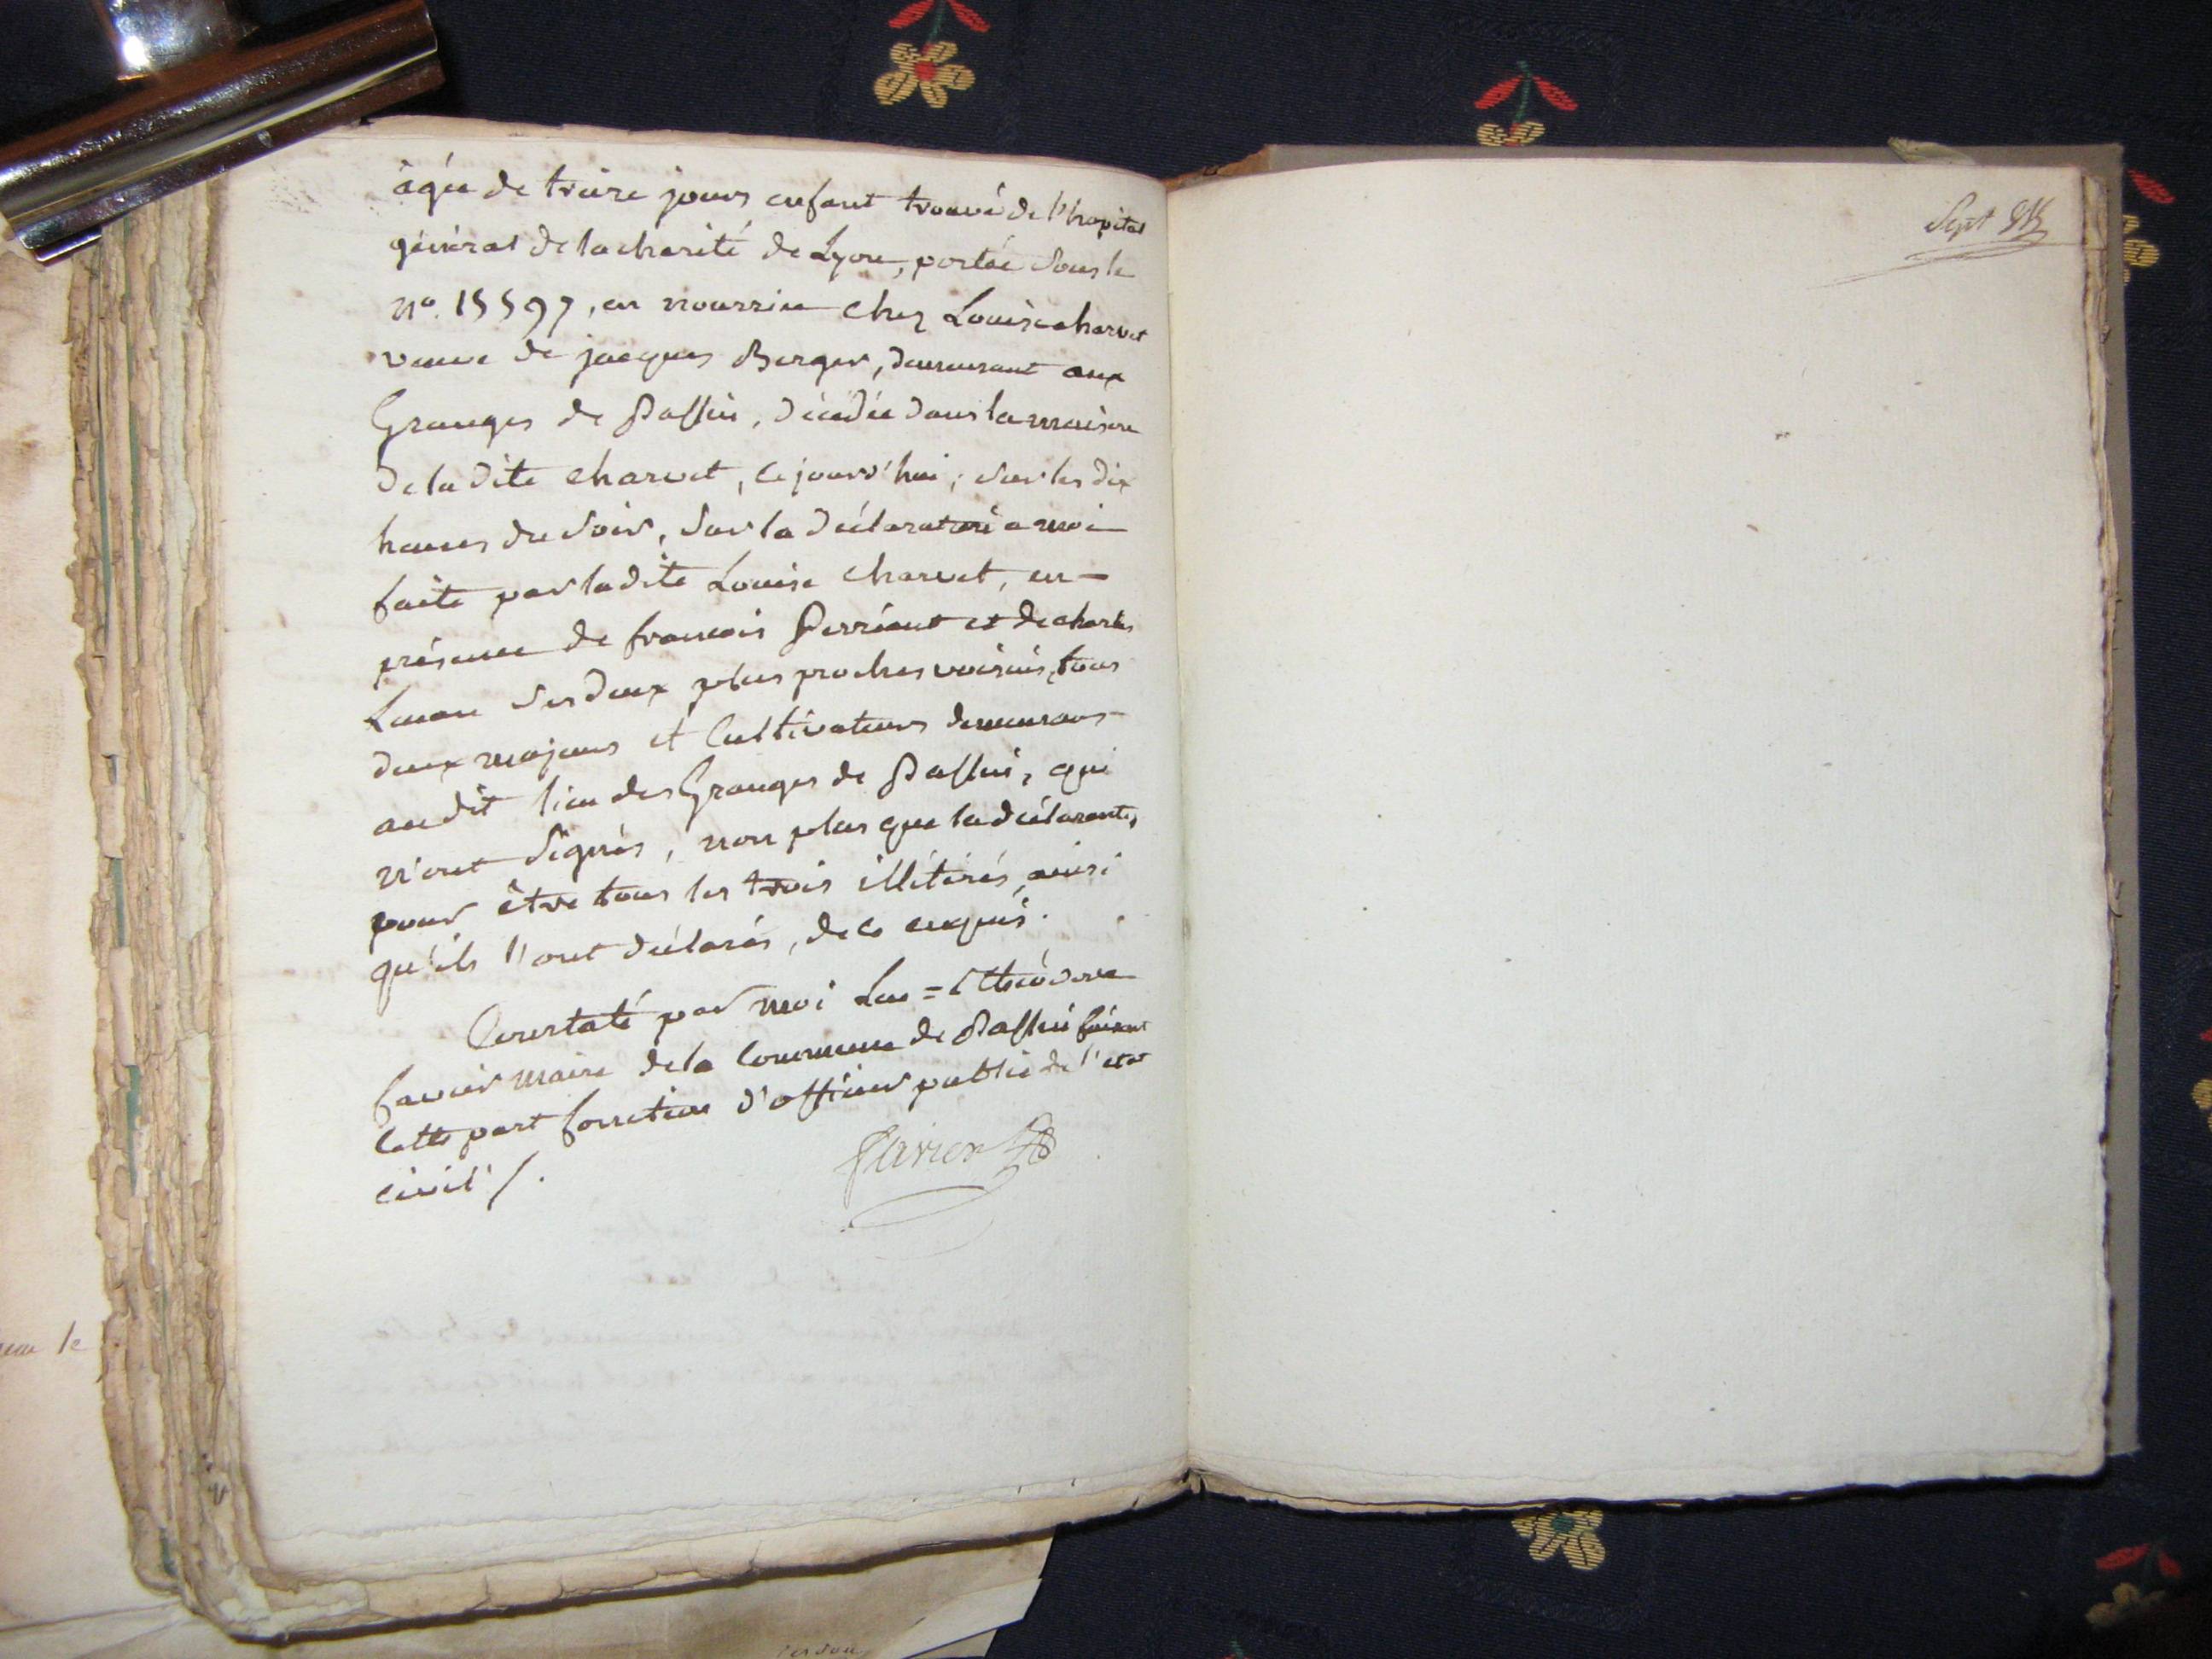 âgée de treize jours enfant trouvé de l'hopital
général de la charité de Lyon, portée sous le
n°. 15597, en nourrice chez Louise charvet
veuve de jacques Berger, demeurant aux
Granges de Passin, décédée dans la maison
de la dite charvet, cejourd'hui, sur les dix
heures du soir, sur la déclaration a moi
faite par ladite Louise charvet, en
présence de francois Perriaut et de charles
ses deux plus proches voisins, tous
deux majeurs et Cultivateurs demeurans
audit lieu des Granges de Passin, qui
n'ont signés, non plus que la déclarante,
pour être tous les trois illitérés, ainsi
qu'ils l'ont déclarés, de ce enquis.
Constaté par moi Luc = théodore
favier maire de la Commune de Passin faisant
cette part fonction d'officier public de l'etat
civil /.
favier
Sept
le